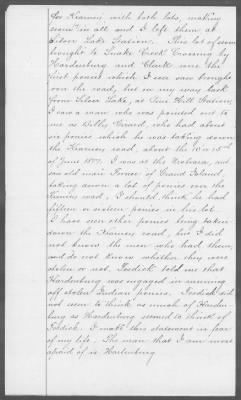 for Kearney, with both lots, making
seven in all and I left them at
Silver Lake Station. This lot of seven
brought to Snake Creek Crossing by
Hardenburg and Clark were the
first ponies which I ever saw brought
over the road, but on my way back
from Silver Lake, at Pine Hill Station,
I saw a man who was pointed out to
me as Billy Brush, who had about
six ponies which he was taking down
the Kearney road, about the 10 or 15th
of June 1877. I was at the Niobrara, and
saw old man Turner of Grand Island,
taking down a lot of ponies over the
Kearney road. I should think he had
fifteen or sixteen ponies in his lot.
I have seen other ponies being taken
down the Kearney road, but I did
not know the men who had them,
and do not know whether they were
stolen or not. Fosdick told me that
Hardenburg was engaged in running
off stolen Indian ponies. Fosdick did
not seem to think as much of Harden
burg as Hardenburg seemed to think of
Fosdick. I make this statement in fear
of my life. The man that I am most
afraid of is Hardenburg